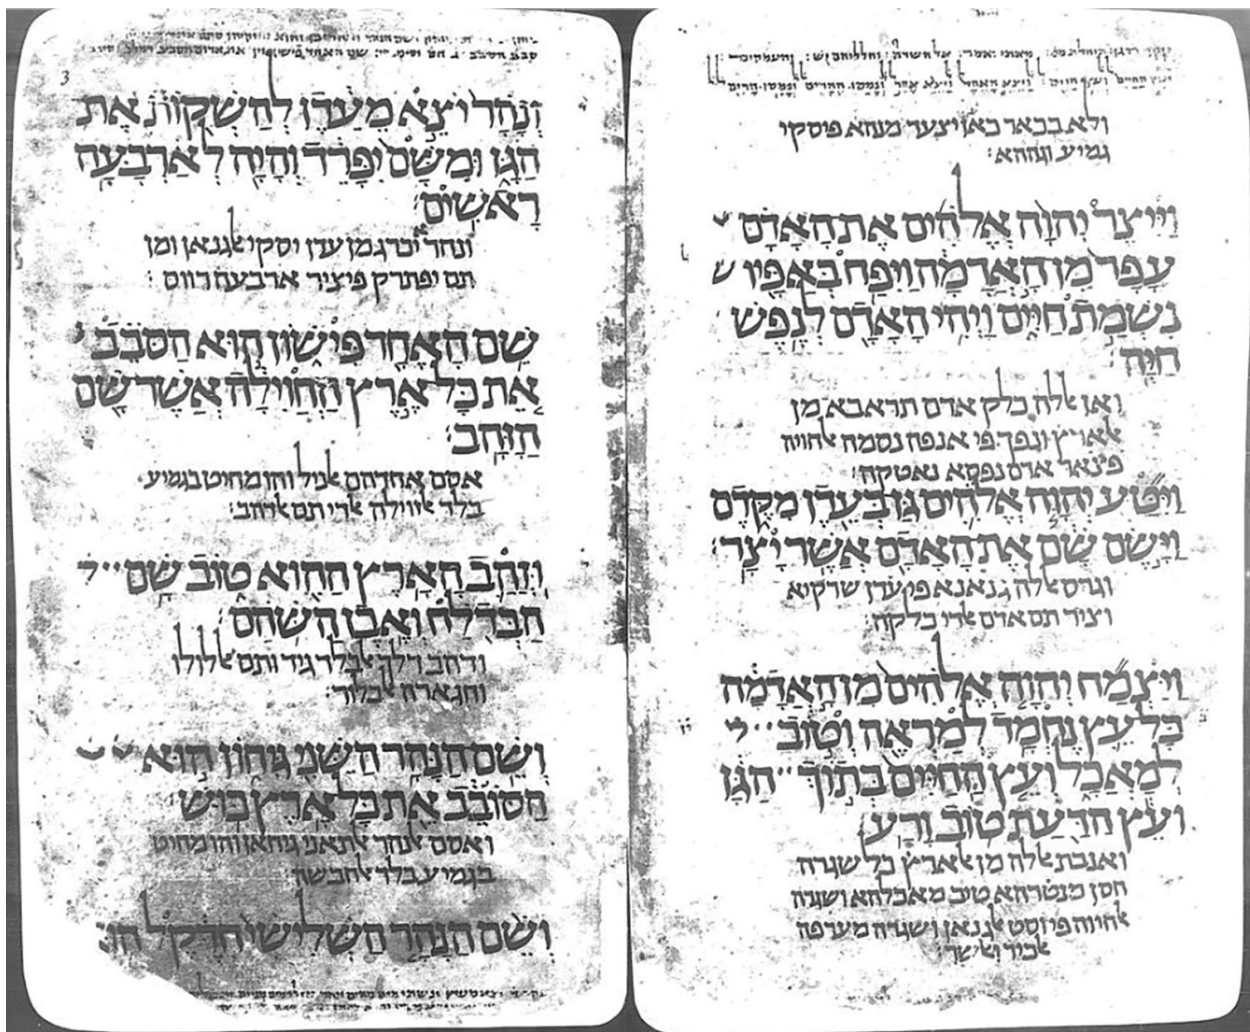 ועץ החיים ועץ החיים ויצא האחד ויצא אחד ונמסו ההרים ונמסו הרים
ולא בכאר כאן יצעד מנהא פיסקי
גמיע וגההא׃
וַיִּיצֶר יְהוָה אֱלֹהִים אֶת הָאָדָם
עָפָר מִן הָאֲדָמָה וַיִּפַּח בְּאַפָּיו
נִשְׁמַת חַיִּים וַיְהִי הָאָדָם לְנֶפֶשׁ
חַיָּה׃
ואן אללה כלק אדם תראבא מן
אלארץ ונפך פי אנפה נסמה אלחויה
פצאר אדם נפסא נאטקה׃
וַיִּטַּע יְהוָה אֱלֹהִים גַּן בְּעֵדֶן מִקֶּדֶם
וַיָּשֶׂם שָׁם אֶת הָאָדָם אֲשֶׁר יָצָר׃
וגרס אללה גנאנא פי עדן שרקיא
וציר תם אדם אלדי כלקה׃
וַיַּצְמַח יְהוָה אֱלֹהִים מִן הָאֲדָמָה
כָּל עֵץ נֶחְמָד לְמַרְאֶה וְטוֹב
לְמַאֲכָל וְעֵץ הַחַיִּים בְּתוֹךְ הַגָּן
וְעֵץ הַדַּעַת טוֹב וָרָע׃
ואנבת אללה מן אלארץ כל שגרה
חסן מנטרהא טיב מאכלהא ושגרה
אלחיוה פי וסט אלגנאן ושגרה מערפה
אלכיר ואלשר׃
3
וְנָהָר יֹצֵא מֵעֵדֶן לְהַשְׁקוֹת אֶת
הַגָּן וּמִשָּׁם יִפָּרֵד וְהָיָה לְאַרְבָּעָה
רָאשִׁים׃
ונהר יכרג מן עדן יסקי אלגנאן ומן
תם יפתרק פיציר ארבעה רווס׃
שֵׁם הָאֶחָד פִּישׁוֹן הוּא הַסֹּבֵב
אֵת כָּל אֶרֶץ הַחֲוִילָה אֲשֶׁר שָׁם
הַזָּהָב׃
אסם אחדהם אלניל והו מחיט בגמיע
בלד אלזוילה אלדי תם אלדהב׃
וּזֲהַב הָאָרֶץ הַהִוא טוֹב שָׁם
הַבְּדֹלַח וְאֶבֶן הַשֹּׁהַם׃
ודהב דלך אלבלד גיד ותם אללולו
וחגארה אלבלור׃
וְשֵׁם הַנָּהָר הַשֵּׁנִי גִּיחוֹן הוּא
הַסּוֹבֵב אֵת כָּל אֶרֶץ כּוּשׁ
ואסם אלנהר אלתאני גיחאן והו מחיט
בגמיע בלד אלחבשה
וְשֵׁם הַנָּהָר הַשְּׁלִישִׁי חִדֶּקֶל הוּא